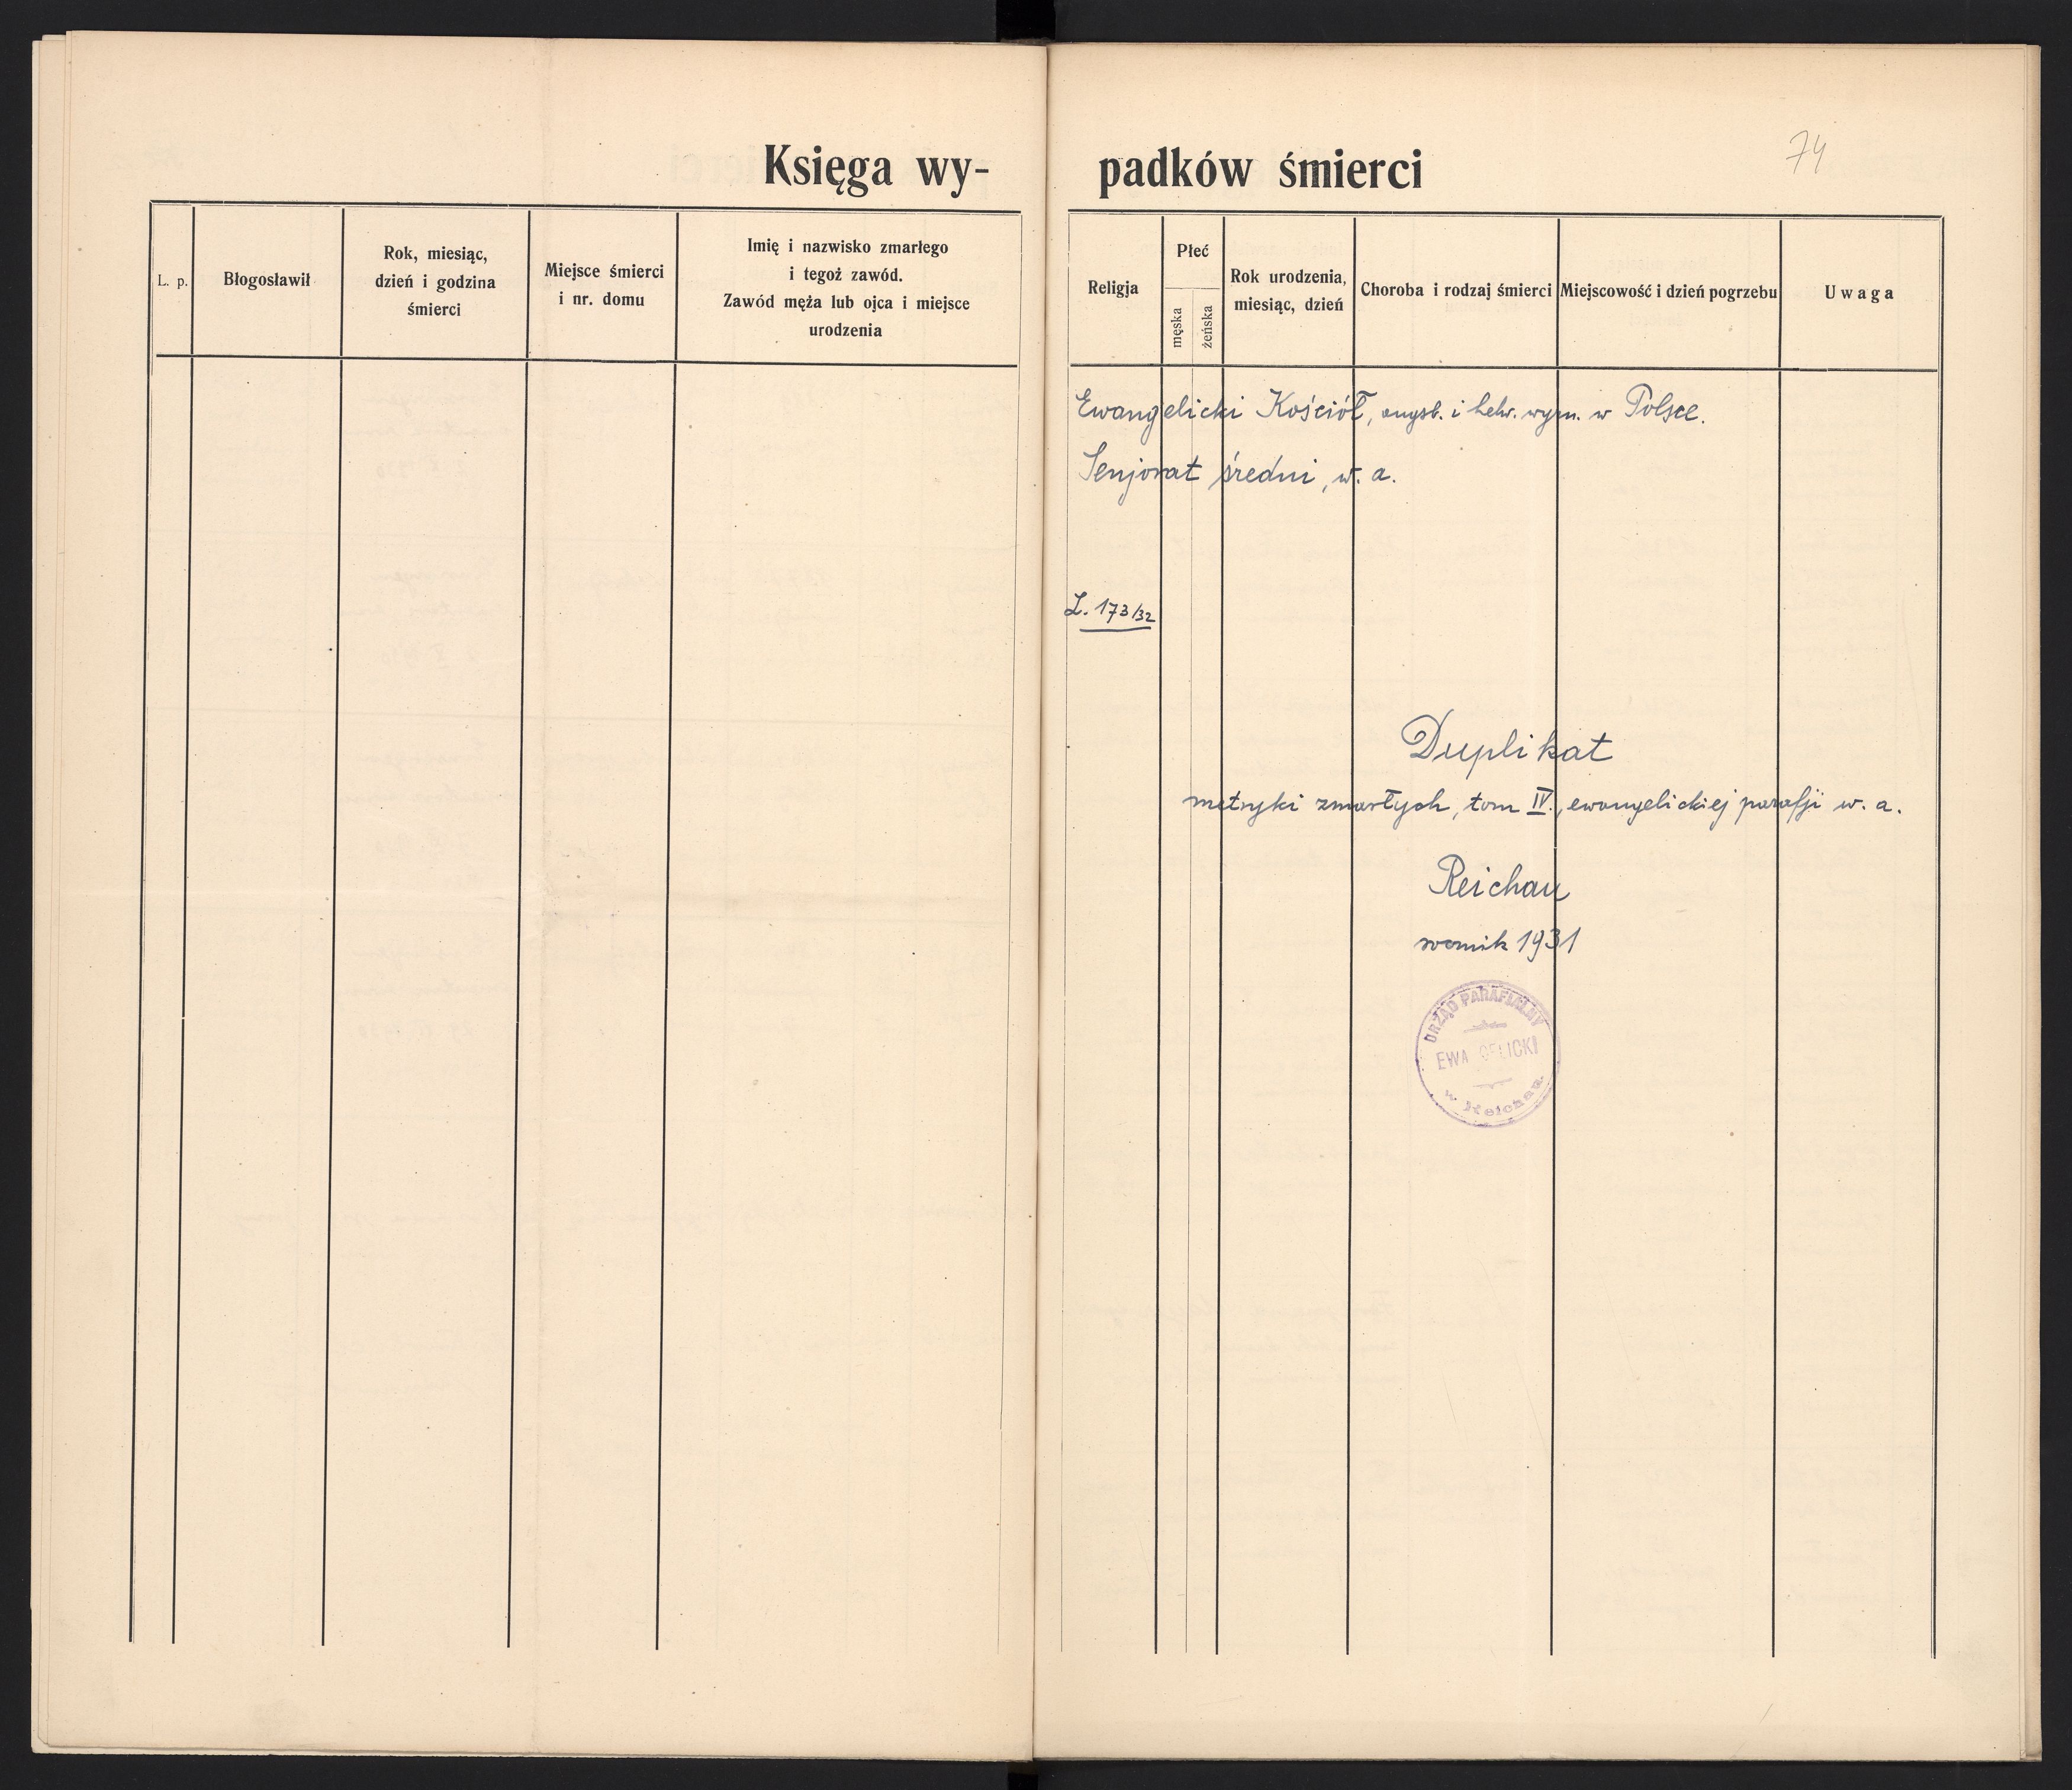 Księga wy-
L. p.
Błogosławił
Rok, miesiąc,
dzień i godzina
śmierci
Miejsce śmierci
i nr. domu
Imię i nazwisko zmarłego
i tegoż zawód.
Zawód męża lub ojca i miejsce
urodzenia
74
padków śmierci
Religja
Płeć
męska
żeńska
Rok urodzenia,
miesiąc, dzień
Choroba i rodzaj śmierci
Miejscowość i dzień pogrzebu
Uwaga
Ewangelicki Kościół, augsb. i helw. wyzn. w Polsce.
Senjorat średni, w. a.
L. 173/32
Duplikat
metryki zmarłych, tom IV., ewangelickiej parafji w. a.
Reichau
rocznik 1931
URZĄD PARAFIALNY
EWA GELICKI
w Reichau